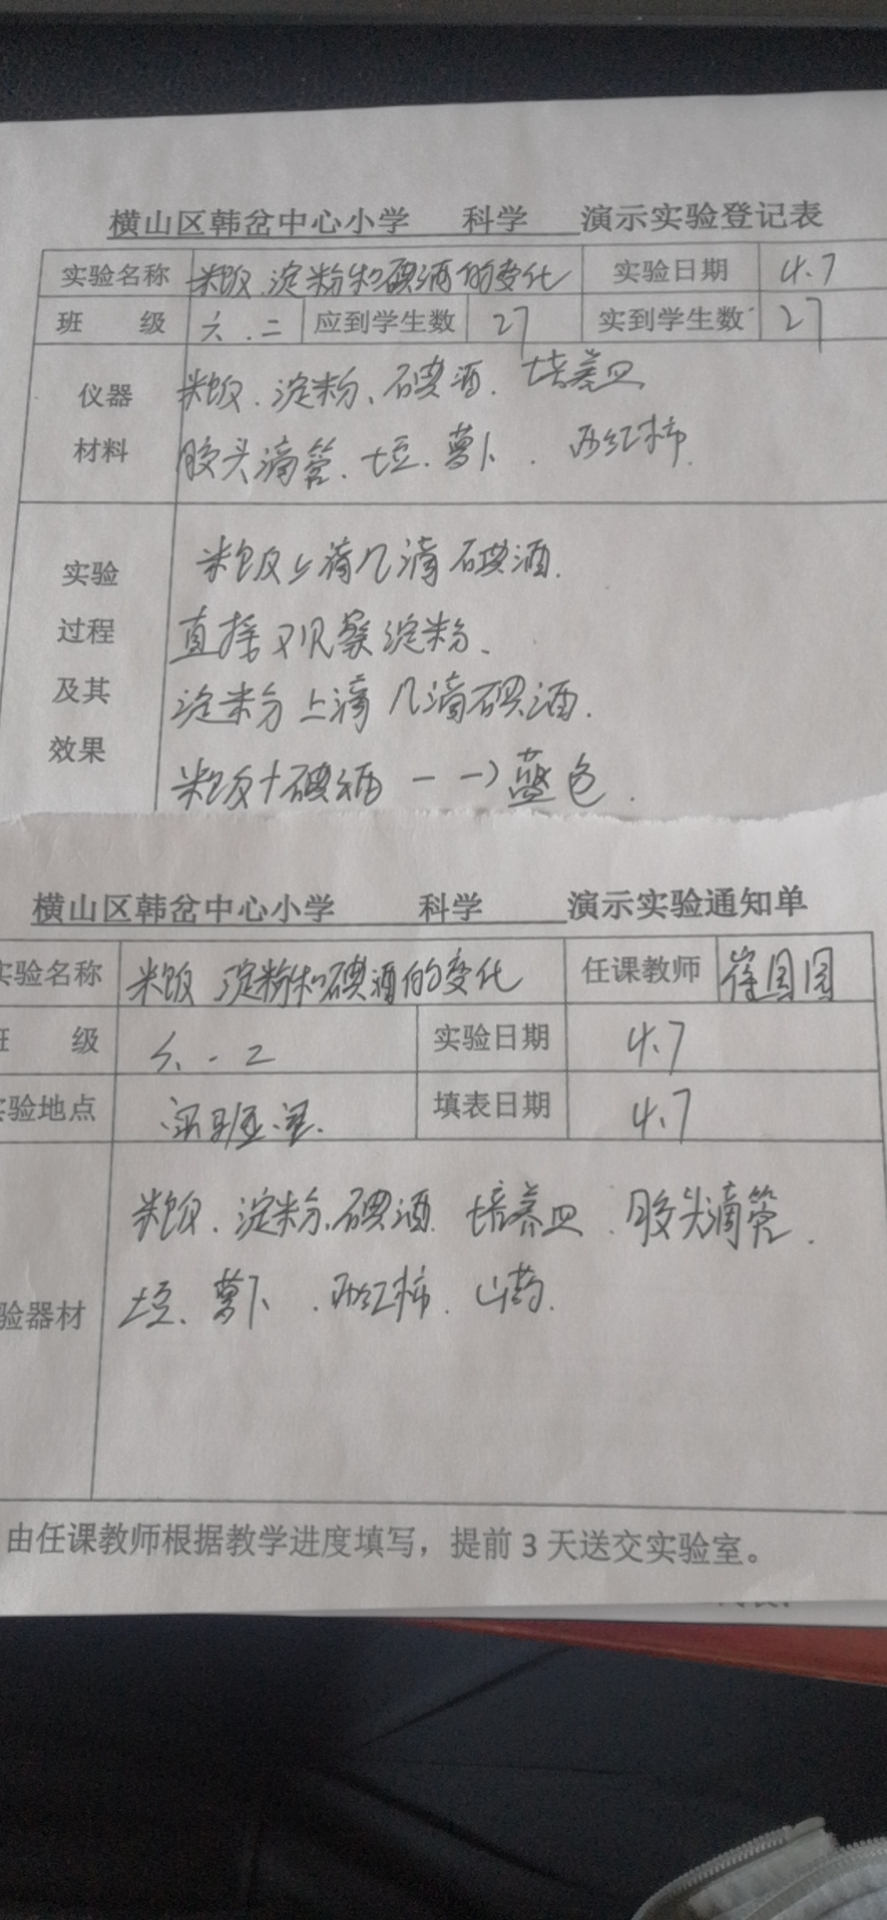 横山区韩岔中心小学 科学 演示实验登记表
实验名称 米饭、淀粉和碘酒的变化 实验日期 4.7
班 级 六.二 应到学生数 27 实到学生数 27
仪器 米饭.淀粉、碘酒.培养皿
材料 胶头滴管.土豆.萝卜.西红柿.
实验 米饭上滴几滴碘酒.
过程 直接观察淀粉、
及其 淀粉上滴几滴碘酒.
效果 米饭+碘酒--→蓝色.
横山区韩岔中心小学 科学 演示实验通知单
实验名称 米饭 淀粉和碘酒的变化 任课教师
级 六.二 实验日期 4.7
验地点 实验室. 填表日期 4.7
米饭.淀粉、碘酒.培养皿.胶头滴管.
验器材 土豆、萝卜.西红柿.山药.
由任课教师根据教学进度填写，提前3天送交实验室。